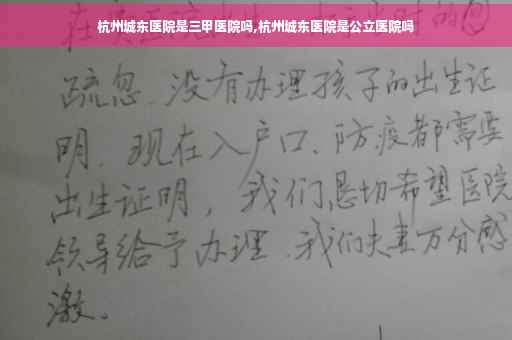 杭州城东医院是三甲医院吗,杭州城东医院是公立医院吗
疏忽.没有办理孩子的出生证
明.现在入户口、防疫都需要
出生证明,我们恳切希望医院
领导给予办理.我们夫妻万分感
激。